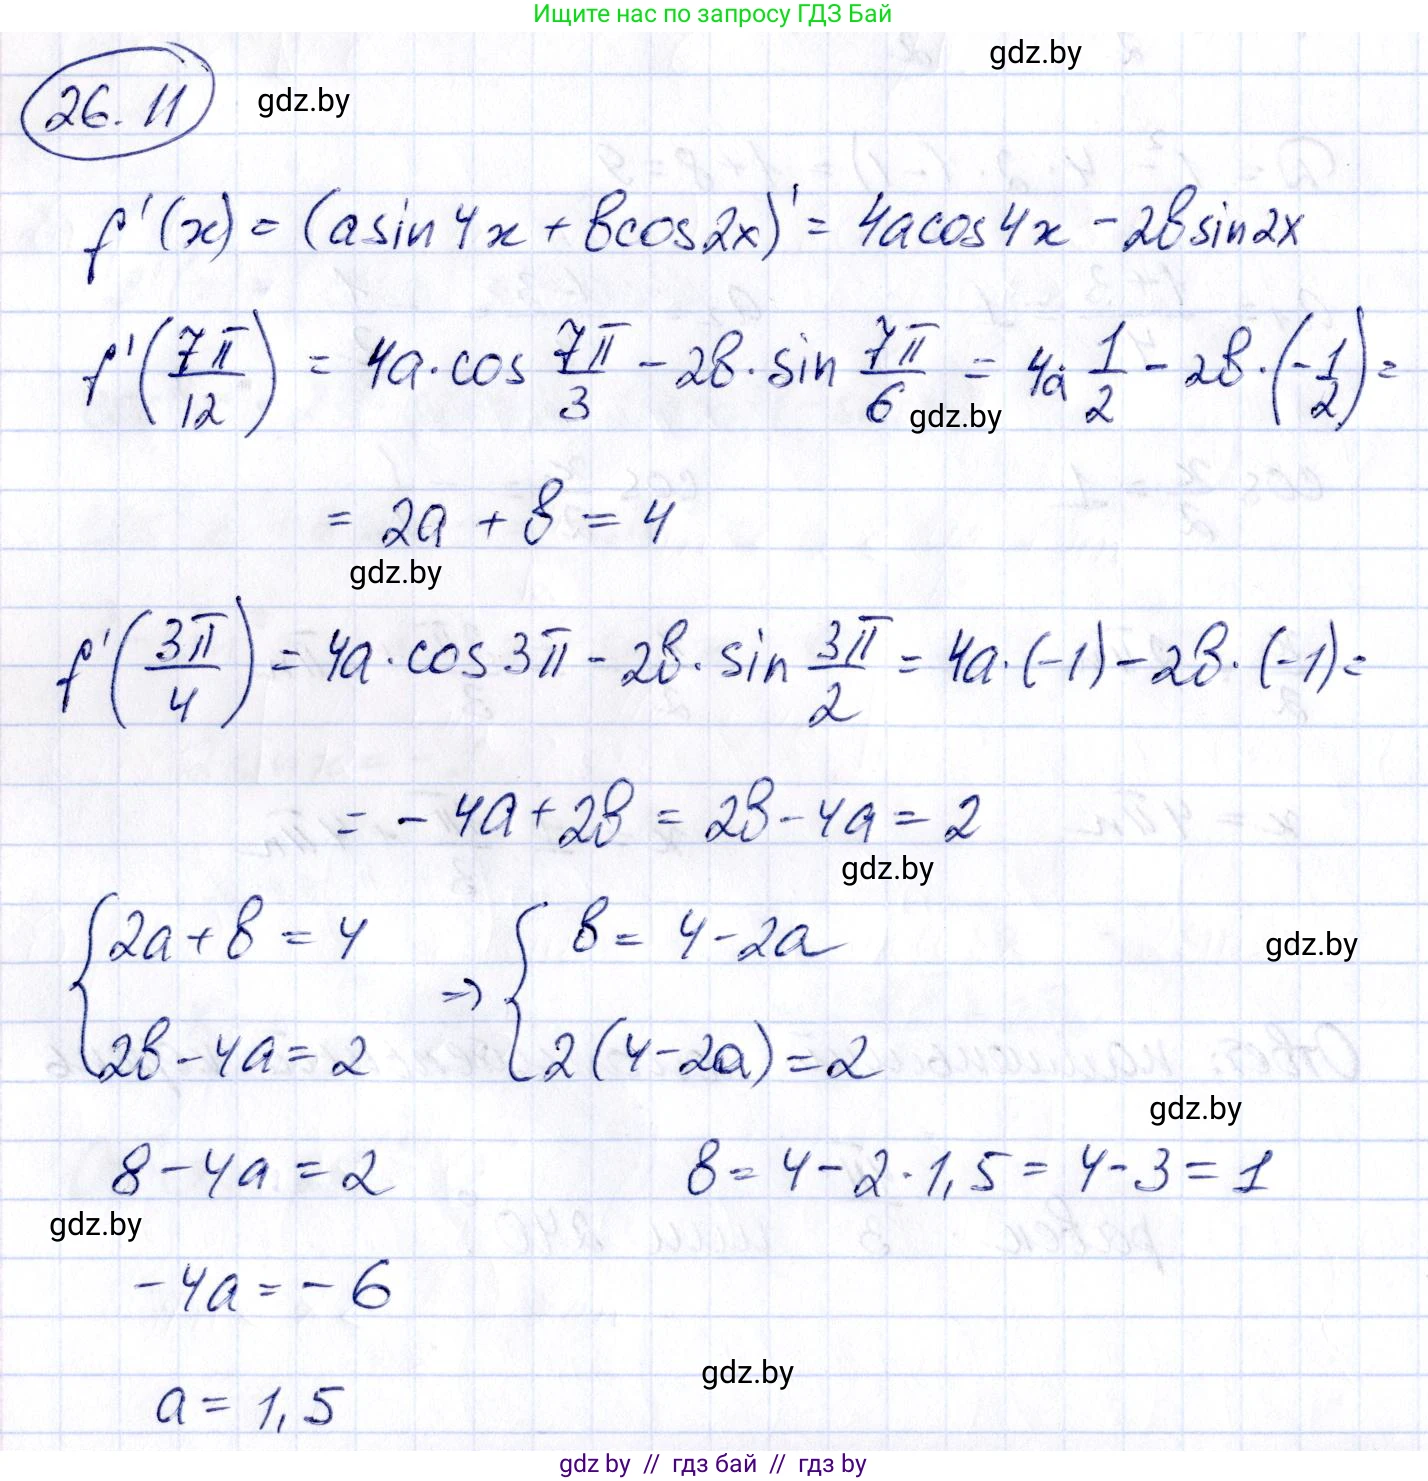 Ищите нас по запросу ГДЗ Бай
gdz.by
26.11
gdz.by
f'(x) = (asin4x + bcos2x)' = 4acos4x - 2bsin2x
f'(7π/12) = 4a·cos 7π/3 - 2b·sin 7π/6 = 4a·1/2 - 2b·(-1/2) =
gdz.by
= 2a + b = 4
gdz.by
f'(3π/4) = 4a·cos3π - 2b·sin 3π/2 = 4a·(-1) - 2b·(-1) =
= -4a + 2b = 2b - 4a = 2
gdz.by
{2a + b = 4 ⇒ {b = 4 - 2a
gdz.by
2b - 4a = 2 2(4 - 2a) = 2
gdz.by
8 - 4a = 2 b = 4 - 2·1,5 = 4 - 3 = 1
gdz.by
-4a = -6
gdz.by
a = 1,5
gdz by // гдз бай // гдз by